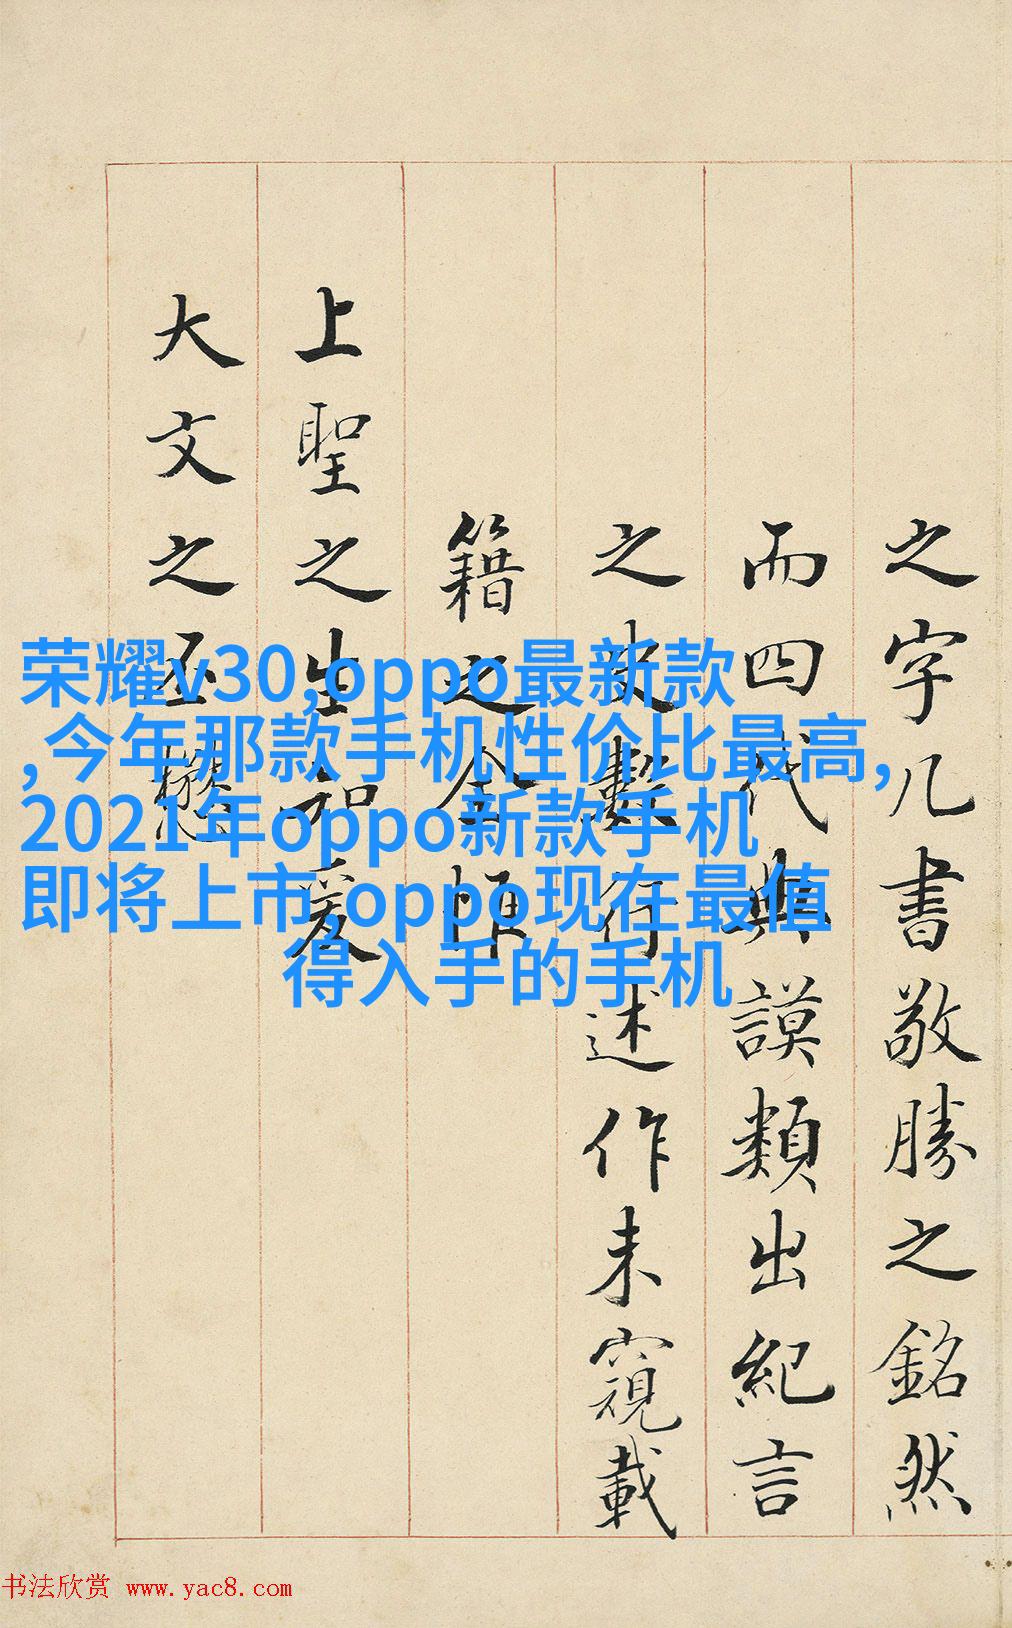 之字几書敬勝之銘然
而四代典謨類出紀言
之史數行述作未窺載
籍之全怖
上聖之生知爰
大文之丕
荣耀v30,oppo最新款
,今年那款手机性价比最高,
2021年oppo新款手机
即将上市,oppo现在最值
得入手的手机
书法欣赏 www.yac8.com